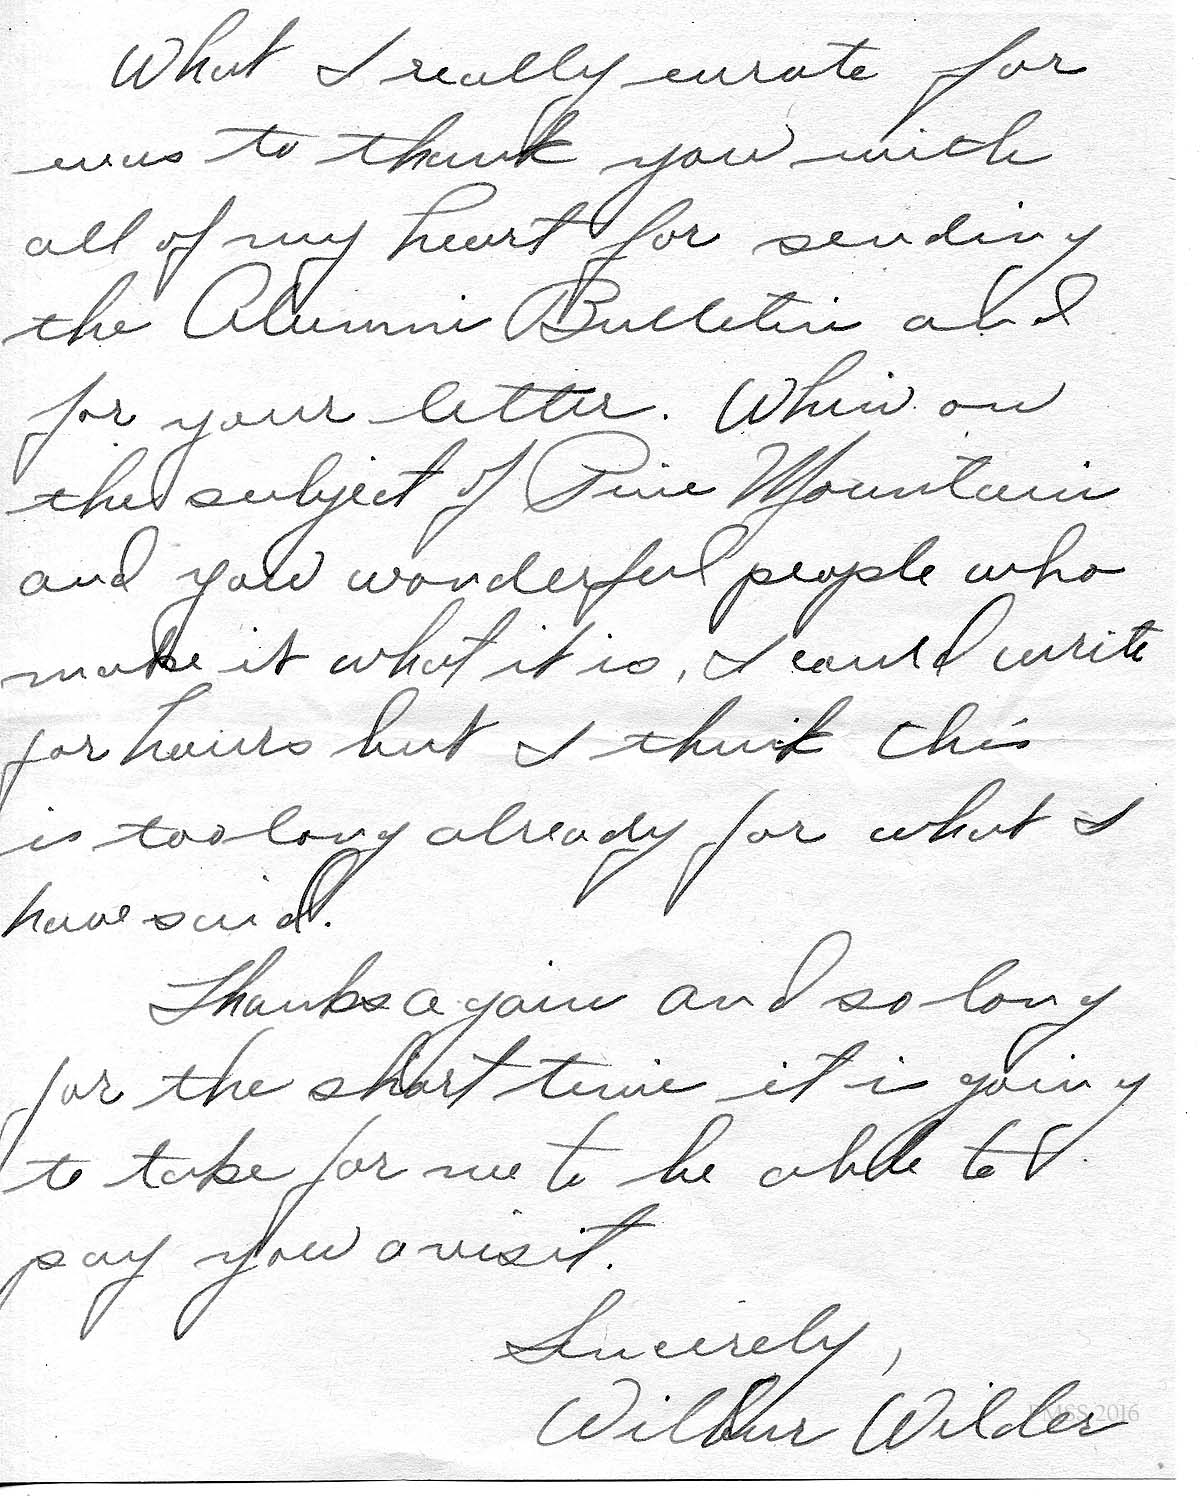 What I really wrote for
was to thank you with
all of my heart for sending
the Alumni Bulletin and
for your letter. When on
the subject of Pine Mountain
and you wonderful people who
make it what it is, I could write
for hours but I think this
is too long already for what I
have said.
Thanks again and so long
for the short time it is going
to take for me to be able to
pay you a visit.
Sincerely,
Wilbur Wilder
PMSS 2016